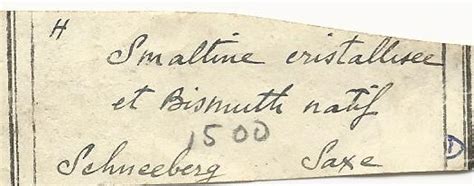 H
Smaltine cristallisee
et Bismuth natif
1500
Schneeberg Saxe